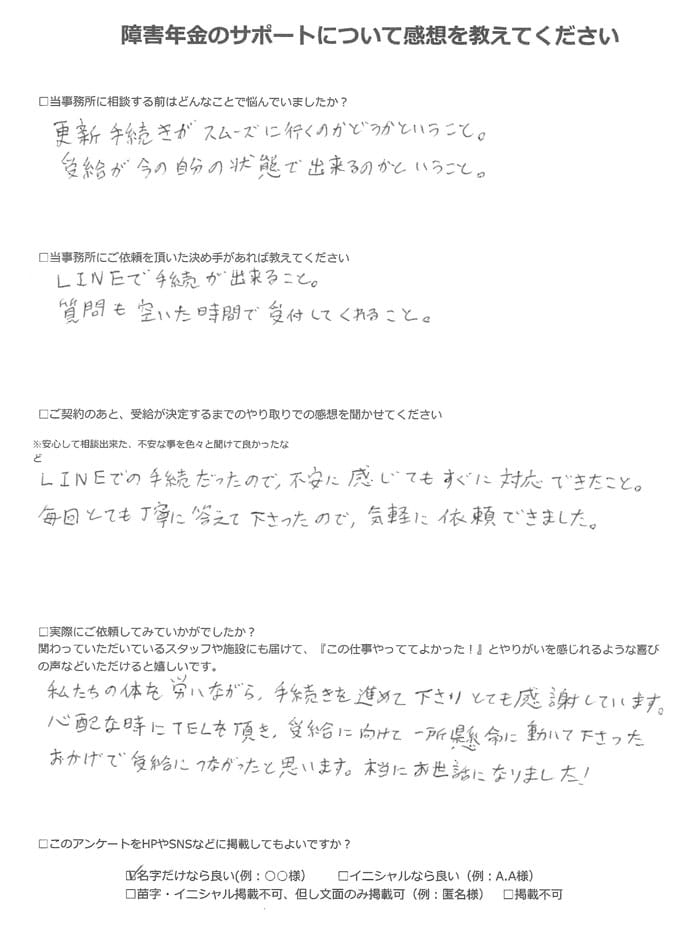 障害年金のサポートについて感想を教えてください
□当事務所に相談する前はどんなことで悩んでいましたか？
更新手続きがスムーズに行くのかどうかということ。
受給が今の自分の状態で出来るのかということ。
□当事務所にご依頼を頂いた決め手があれば教えてください
LINEで手続が出来ること。
質問も空いた時間で受付してくれること。
□ご契約のあと、受給が決定するまでのやり取りでの感想を聞かせてください
※安心して相談出来た、不安な事を色々と聞けて良かったな
ど
LINEでの手続だったので,不安に感じてもすぐに対応できたこと。
毎回とても丁寧に答えて下さったので,気軽に依頼できました。
□実際にご依頼してみていかがでしたか？
関わっていただいているスタッフや施設にも届けて、『この仕事やっててよかった！』とやりがいを感じれるような喜び
の声などいただけると嬉しいです。
私たちの体を労いながら,手続きを進めて下さりとても感謝しています。
心配な時にTELを頂き,受給に向けて一所懸命に動いて下さった
おかげで受給につながったと思います。本当にお世話になりました!
□このアンケートをHPやSNSなどに掲載してもよいですか？
☑名字だけなら良い(例：○○様）　□イニシャルなら良い（例：A.A様）
□苗字・イニシャル掲載不可、但し文面のみ掲載可（例：匿名様）　□掲載不可